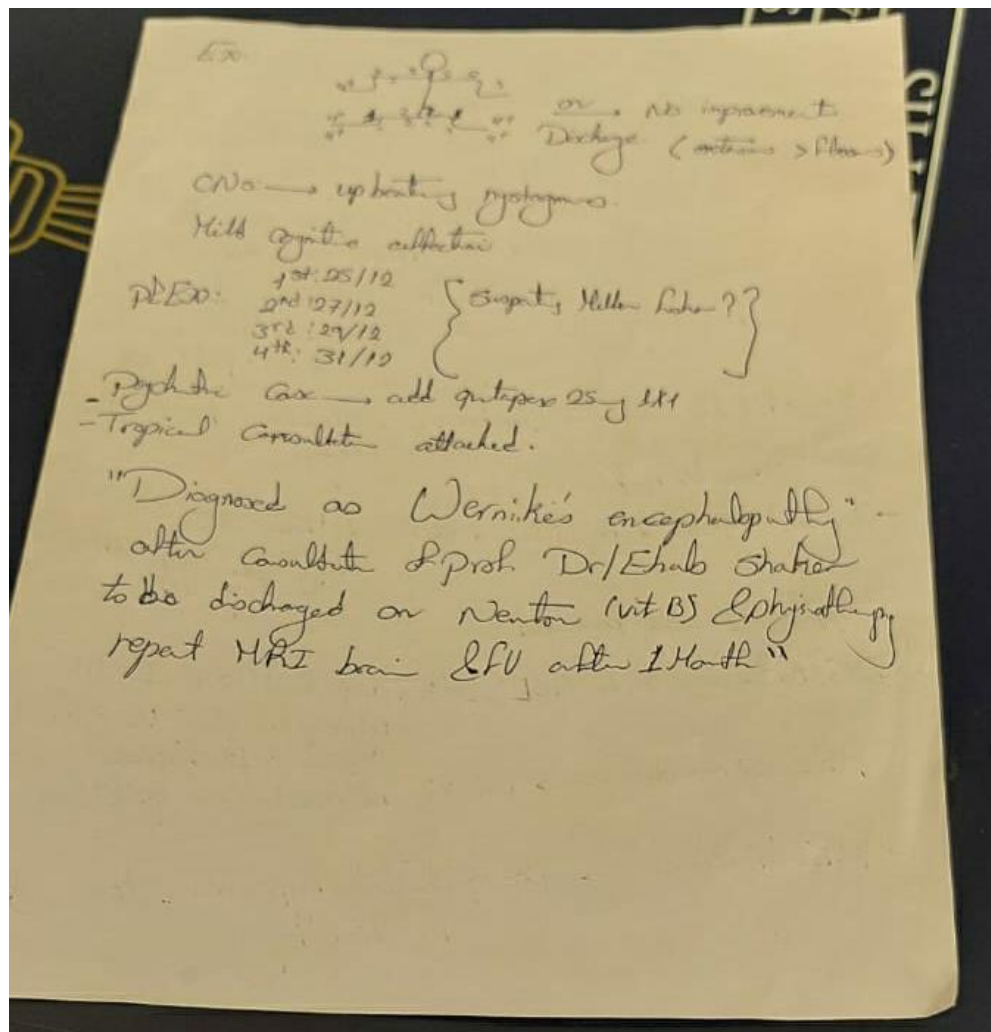 Ex:
on → No improvement
Discharge (extensors > flexors)
CNs: → upbeating nystagmus.
Mild cognitive affection
PLEX: 1st: 25/12
2nd: 27/12
3rd: 29/12
4th: 31/12
{Suspecting Miller Fisher??}
- Psychatric Cons → add qutapex 25mg 1x1
- Tropical Consultation attached.
"Diagnosed as Wernike's encephalopathy"
after Consultation of Prof Dr/Ehab Shaker
to be discharged on Neurton (vit B) & physiotherapy
repeat MRI brain & FU after 1 Month"